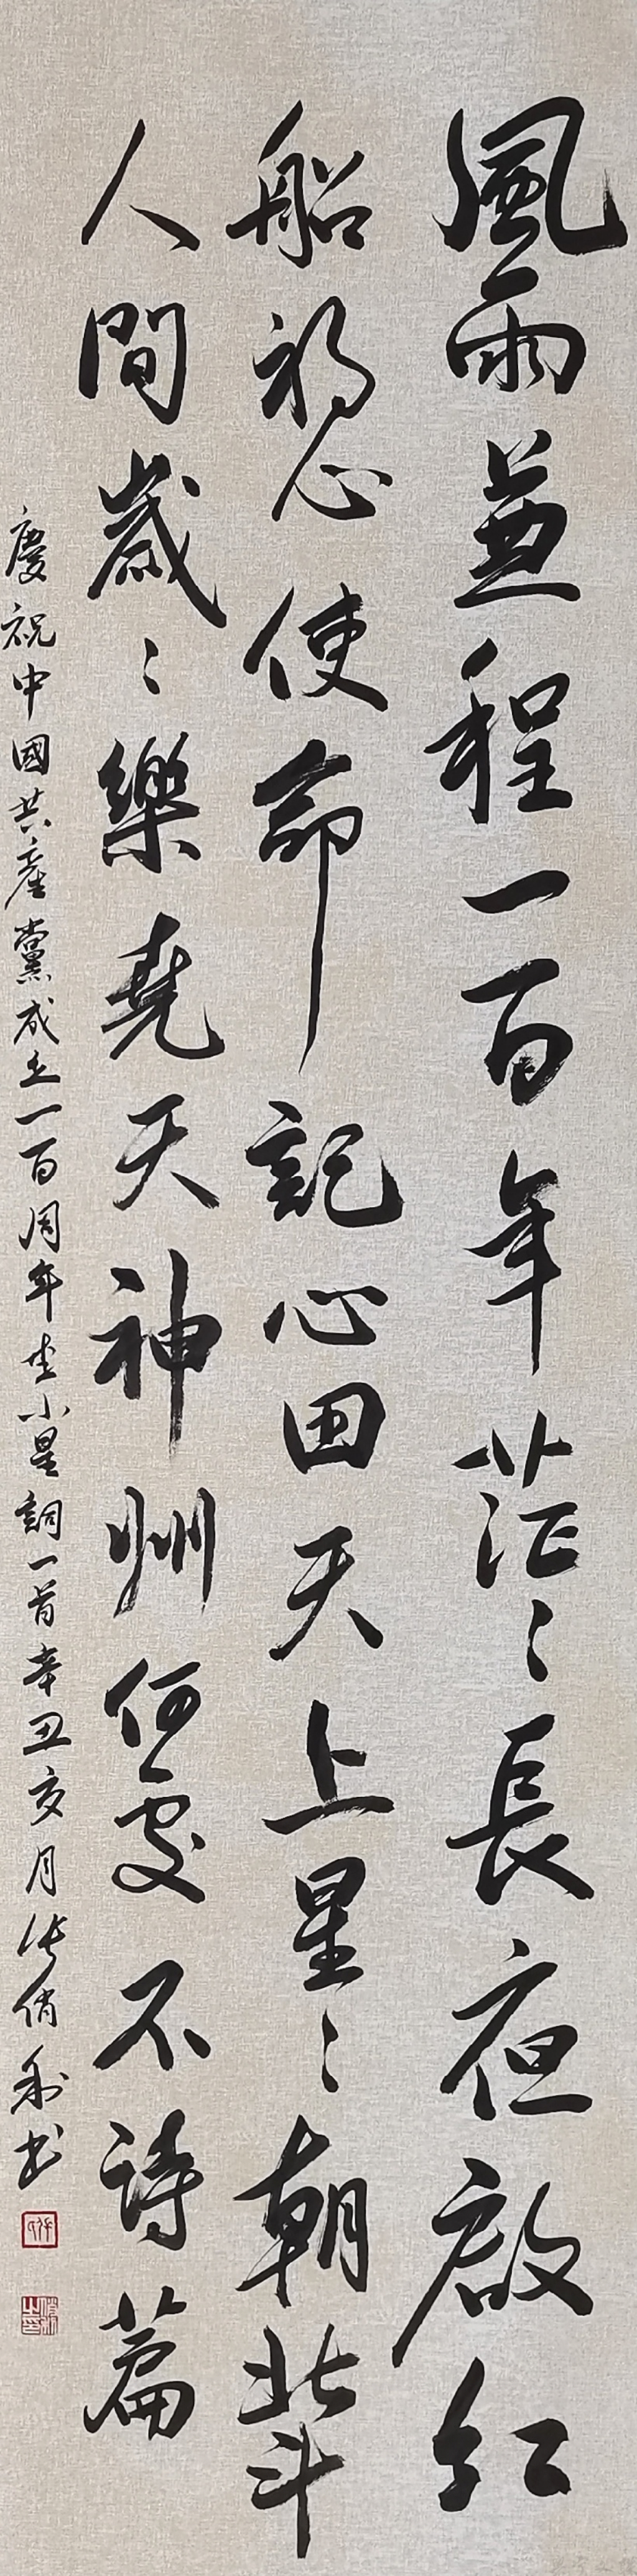 風雨兼程一百年茫〻長夜啟紅
船初心使命記心田天上星〻朝北斗
人間歲〻樂堯天神州何處不詩篇
慶祝中國共產黨成立一百周年 小星詞一首辛丑亥月 俏利书